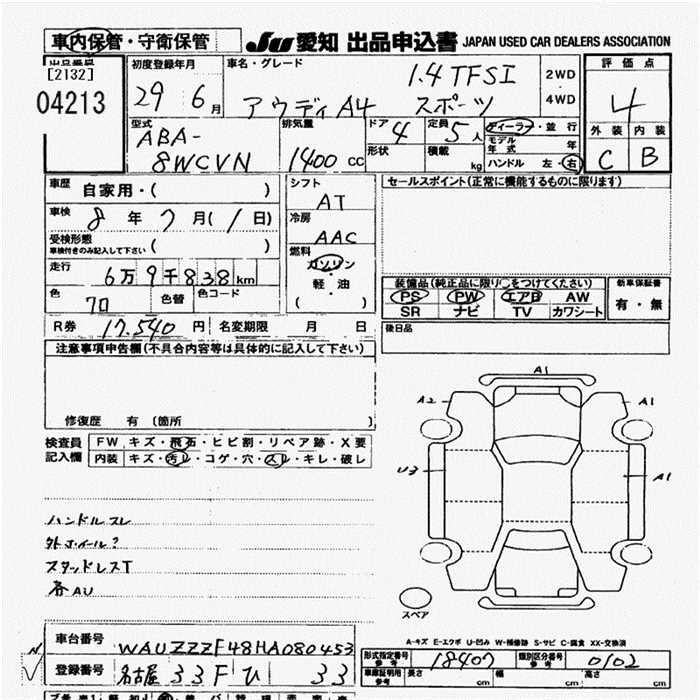 車内保管・守衛保管
JU 愛知 出品申込書 JAPAN USED CAR DEALERS ASSOCIATION
出品番号
[2132]
04213
初度登録年月
29 6月
車名・グレード
1.4 TFSI
アウディ A4 スポーツ
2WD
4WD
評価点
4
外装 内装
C B
型式
ABA-
8WCVN
排気量
1400 cc
ドア 4
形状
定員 5人
積載 kg
ディーラー・並行
モデル年式 年
ハンドル 左・右
車歴 自家用・( )
車検 8年7月(1日)
受検形態
車検付きのみ記入して下さい ( )
走行 6万9千838km
色 クロ 色替 色コード
R券 17.540円 名変期限 月 日
シフト
AT
冷房
AAC
燃料
ガソリン
軽・油
( )
セールスポイント(正常に機能するものに限ります)
装備品(純正品に限り○をつけてください)
PS PW エアB AW
SR ナビ TV カワシート
新車保証書
有・無
後日品
注意事項申告欄(不具合内容等は具体的に記入して下さい)
修復歴 有 (箇所 )
検査員記入欄
FW キズ・飛石・ヒビ割・リペア跡・X要
内装 キズ・汚レ・コゲ・穴・スレ・キレ・破レ
ハンドルスレ
外ホイール?
スタッドレスT
各AU
A1
A2 A1
U3 A1
スペア
A-キズ E-エクボ U-凹み W-補修跡 S-サビ C-腐食 XX-交換済
車台番号 WAUZZZF48HA080453
登録番号 名古屋 33F ひ 33
型式指定番号 参考 18407
類別区分番号 参考 0102
車庫証明用 参考 長さ cm 幅 cm 高さ cm